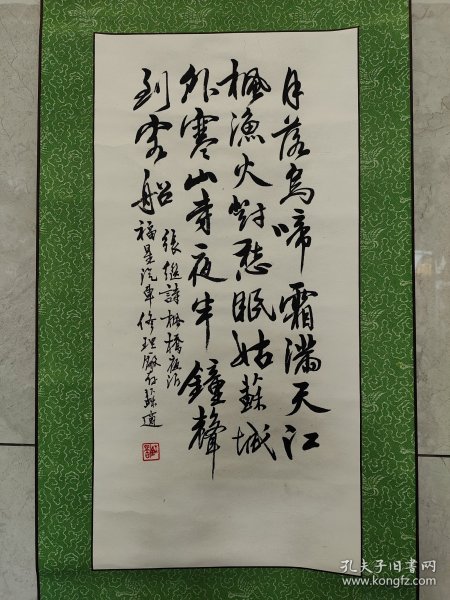 月落烏啼霜滿天江
楓漁火對愁眠姑蘇城
外寒山寺夜半鐘聲
到客船
張繼詩楓橋夜泊
福星汽車修理廠存
孔夫子旧书网
www.kongfz.com